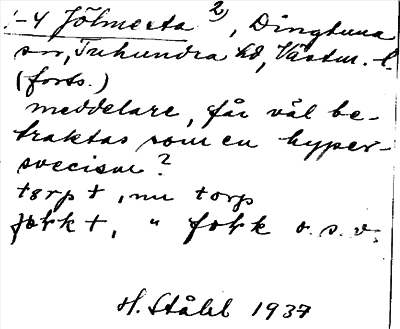 1-4 Jölmesta 2), Dingtuna
sn, Tuhundra hd, Västm. l.
(forts.)
meddelare, får väl be-
traktas som en hyper-
svecism?
torp †, nu torp
fokk †, " fokk o. s. v.
H. Ståhl 1937